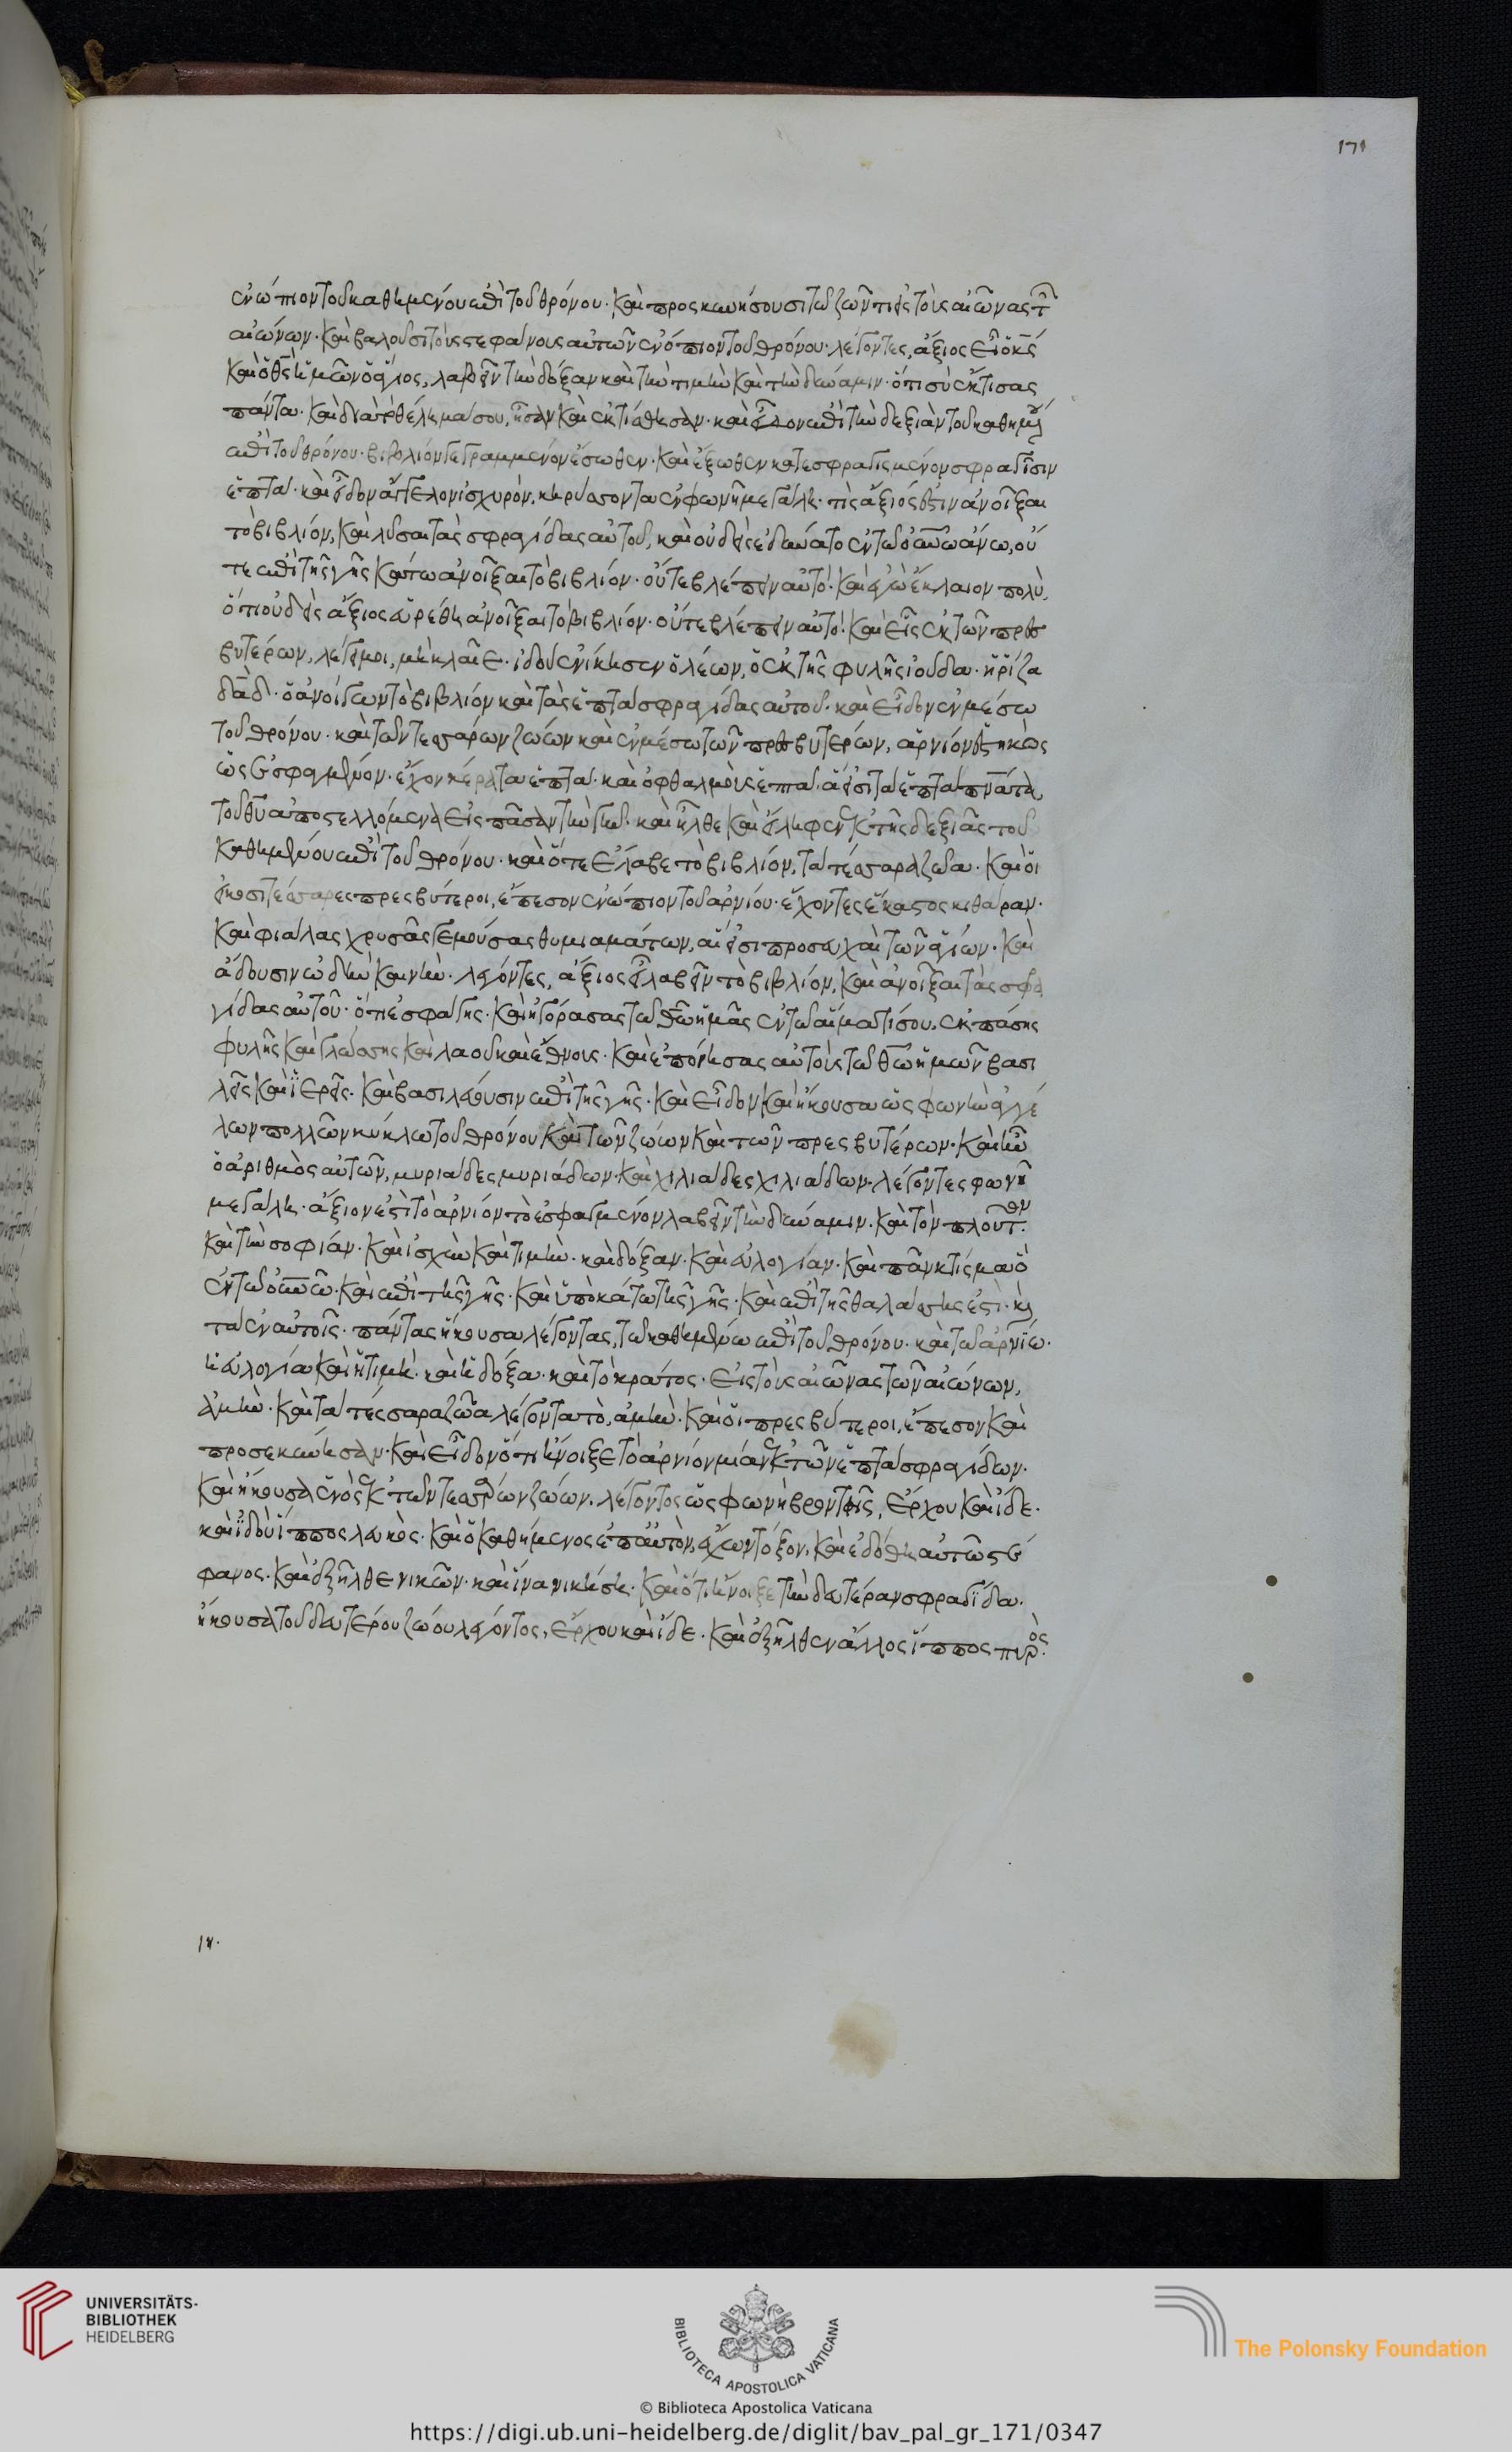 171
ἐνώπιον τοῦ καθημένου ἐπὶ τοῦ θρόνου· καὶ προσκυνήσουσι τῶ ζῶντι εἰς τοὺς αἰῶνας τῶ
αἰώνων· καὶ βαλοῦσι τοὺς στεφάνους αὐτῶν ἐνόπιον τοῦ θρόνου· λέγοντες, ἄξιος εἶ ὁ κς
καὶ ὁ θς ἡμῶν ὁ ἅγιος, λαβεῖν τὴν δόξαν καὶ τὴν τιμὴν καὶ τὴν δύναμιν· ὅτι σὺ ἔκτισας
πάντα· καὶ διὰ τὸ θέλημα σου, ἦσαν καὶ ἐκτίσθησαν· καὶ εἶδον ἐπὶ τὴν δεξιὰν τοῦ καθημέ
ἐπὶ τοῦ θρόνου· βιβλίον γεγραμμένον ἔσωθεν· καὶ ἔξωθεν κατεσφραγισμένον σφραγῖσιν
ἑπτά· καὶ εἶδον ἄγγελον ἰσχυρόν, κηρύσσοντα ἐν φωνῆ μεγάλη· τὶς ἄξιός ἐστιν ἀνοῖξαι
τὸ βιβλίον, καὶ λῦσαι τὰς σφραγίδας αὐτοῦ, καὶ οὐδεὶς ἐδύνατο ἐν τῶ οὐνῶ ἄνω, οὐ
τε ἐπὶ τῆς γῆς κάτω ἀνοῖξαι τὸ βιβλίον· οὔτε βλέπειν αὐτό· καὶ ἐγὼ ἔκλαιον πολύ,
ὅτι οὐδεὶς ἄξιος εὑρέθη ἀνοῖξαι τὸ βιβλίον· οὔτε βλέπειν αὐτό· καὶ εἷς ἐκ τῶν πρεσ
βυτέρων, λέγει μοι, μὴ κλαῖε· ἰδοὺ ἐνίκησεν ὁ λέων, ὁ ἐκ τῆς φυλῆς ἰούδα· ἡ ῥίζα
δαδ· ὁ ἀνοίγων τὸ βιβλίον καὶ τὰς ἑπτὰ σφραγίδας αὐτοῦ· καὶ εἶδον ἐν μέσω
τοῦ θρόνου· καὶ τῶν τεσσάρων ζώων καὶ ἐν μέσω τῶν πρεσβυτέρων, ἀρνίον ἑστηκὼς
ὡς ἐσφαγμένον· ἔχον κέρατα ἑπτά· καὶ ὀφθαλμοὺς ἑπτά· ἅ εἰσι τὰ ἑπτὰ πνάτα,
τοῦ θυ ἀποστελλόμενα εἰς πᾶσαν τὴν γῆν· καὶ ἦλθε καὶ εἴληφεν ἐκ τῆς δεξιᾶς τοῦ
καθημένου ἐπὶ τοῦ θρόνου· καὶ ὅτε ἔλαβε τὸ βιβλίον, τὰ τέσσαρα ζῶα· καὶ οἱ
εἴκοσι τέσσαρες πρεσβύτεροι, ἔπεσον ἐνώπιον τοῦ ἀρνίου· ἔχοντες ἕκαστος κιθάραν·
καὶ φιάλας χρυσᾶς γεμούσας θυμιαμάτων, αἵ εἰσι προσευχαὶ τῶν ἁγίων· καὶ
ἄδουσιν ὠδὴν καινὴν· λέγοντες, ἄξιος εἶ λαβεῖν τὸ βιβλίον, καὶ ἀνοῖξαι τὰς σφρα
γίδας αὐτοῦ· ὅτι ἐσφάγης· καὶ ἠγόρασας τῶ θῶ ἡμᾶς ἐν τῶ αἵματί σου, ἐκ πάσης
φυλῆς καὶ γλώσσης καὶ λαοῦ καὶ ἔθνους· καὶ ἐποίησας αὐτοὺς τῶ θῶ ἡμῶν βασι
λεῖς καὶ ἱερεῖς· καὶ βασιλεύουσιν ἐπὶ τῆς γῆς· καὶ εἶδον καὶ ἤκουσα ὡς φωνὴν ἀγγέ
λων πολλῶν κύκλω τοῦ θρόνου καὶ τῶν ζώων καὶ τῶν πρεσβυτέρων· καὶ ἦν
ὁ ἀριθμὸς αὐτῶν, μυριάδες μυριάδων· καὶ χιλιάδες χιλιάδων· λέγοντες φωνῆ
μεγάλη· ἄξιον ἐστὶ τὸ ἀρνίον τὸ ἐσφαγμένον λαβεῖν τὴν δύναμιν· καὶ τὸν πλοῦτον·
καὶ τὴν σοφίαν· καὶ ἰσχὺν καὶ τιμὴν· καὶ δόξαν· καὶ εὐλογίαν· καὶ πᾶν κτίσμα ὃ
ἐν τῶ οὐνῶ· καὶ ἐπὶ τῆς γῆς· καὶ ὑποκάτω τῆς γῆς· καὶ ἐπὶ τῆς θαλάσσης ἐστὶ· καὶ
τὰ ἐν αὐτοῖς· πάντας ἤκουσα λέγοντας, τῶ καθημένω ἐπὶ τοῦ θρόνου· καὶ τῶ ἀρνίω·
ἡ εὐλογία καὶ ἡ τιμὴ· καὶ ἡ δόξα· καὶ τὸ κράτος· εἰς τοὺς αἰῶνας τῶν αἰώνων,
ἀμὴν· καὶ τὰ τέσσαρα ζῶα λέγοντα τὸ, ἀμὴν· καὶ οἱ πρεσβύτεροι, ἔπεσον καὶ
προσεκύνησαν· καὶ εἶδον ὅτι ἤνοιξε τὸ ἀρνίον μίαν ἐκ τῶν ἑπτὰ σφραγίδων·
καὶ ἤκουσα ἑνὸς ἐκ τῶν τεσσάρων ζώων, λέγοντος ὡς φωνὴ βροντῆς, ἔρχου καὶ ἴδε·
καὶ ἰδοὺ ἵππος λευκὸς· καὶ ὁ καθήμενος ἐπ αὐτὸν, ἔχων τόξον, καὶ ἐδόθη αὐτῶ στέ
φανος· καὶ ἐξῆλθε νικῶν· καὶ ἵνα νικήση· καὶ ὅτι ἤνοιξε τὴν δευτέραν σφραγίδα·
ἤκουσα τοῦ δευτέρου ζώου λέγοντος, ἔρχου καὶ ἴδε· καὶ ἐξῆλθεν ἄλλος ἵππος πυρός·
UNIVERSITÄTS-
BIBLIOTHEK
HEIDELBERG
BIBLIOTECA APOSTOLICA VATICANA
The Polonsky Foundation
© Biblioteca Apostolica Vaticana
https://digi.ub.uni-heidelberg.de/diglit/bav_pal_gr_171/0347